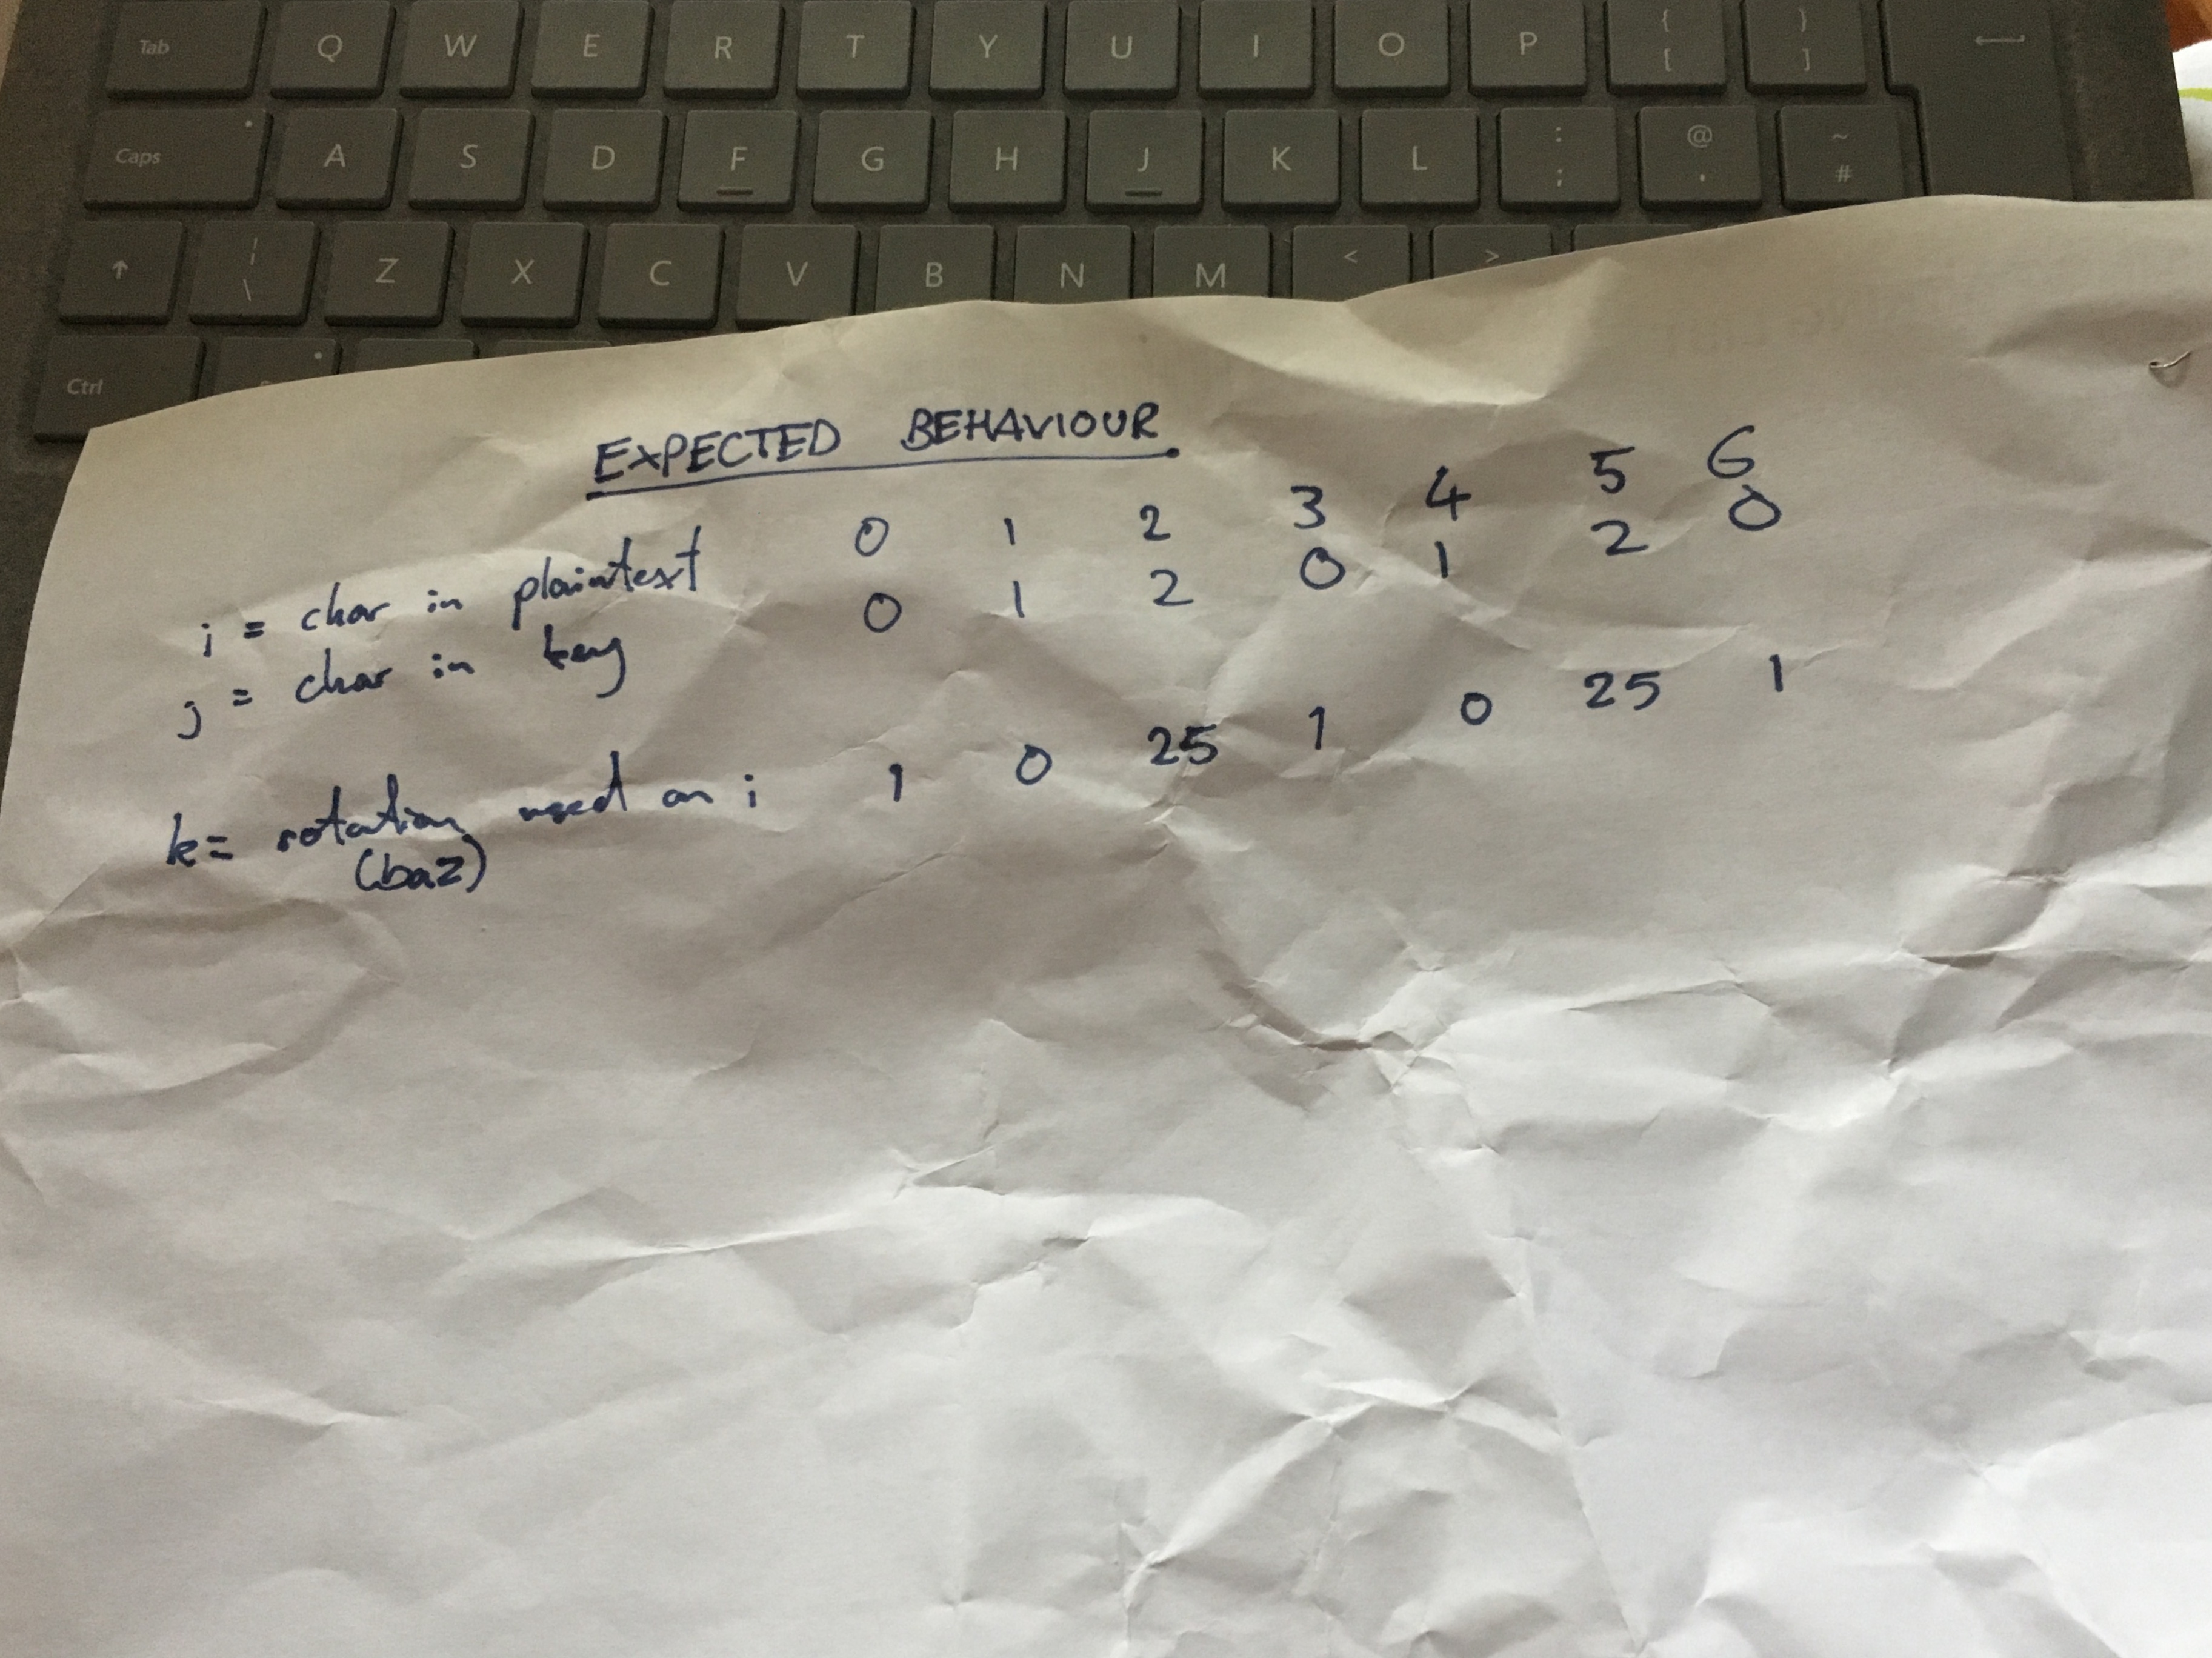 Tab Q W E R T Y U I O P { [ } ]
Caps A S D F G H J K L : ; @ ' ~ #
| \ Z X C V B N M < >
Ctrl
EXPECTED BEHAVIOUR
i = char in plaintext 0 1 2 3 4 5 6
j = char in key 0 1 2 0 1 2 0
k = rotation used on i 1 0 25 1 0 25 1
(baz)